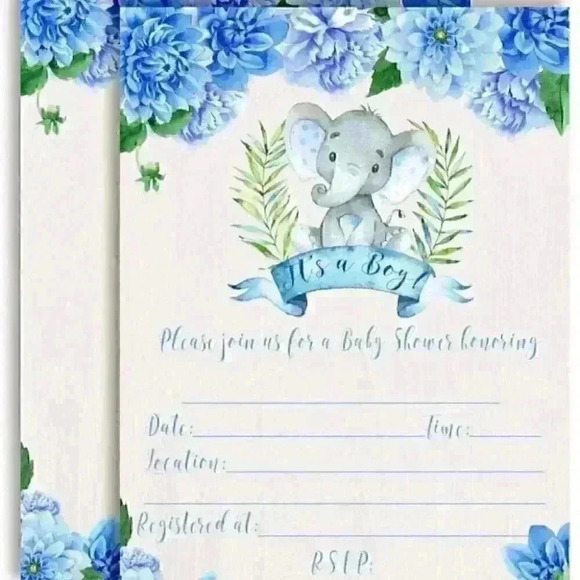 It's a Boy!
Please join us for a Baby Shower honoring
Date: Time:
Location:
Registered at:
RSVP: